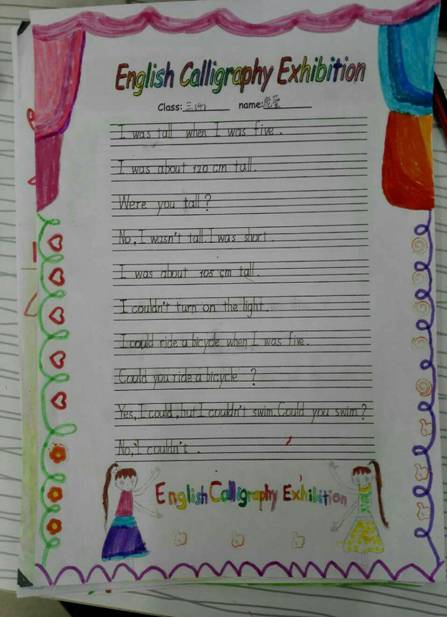 English Calligraphy Exhibition
Class: name:
I was tall when I was five.
I was about 120 cm tall.
Were you tall?
No, I wasn't tall. I was short.
I was about 105 cm tall.
I couldn't turn on the light.
I could ride a bicycle when I was five.
Could you ride a bicycle ?
Yes, I could, but I couldn't swim. Could you swim?
No, I couldn't.
English Calligraphy Exhibition